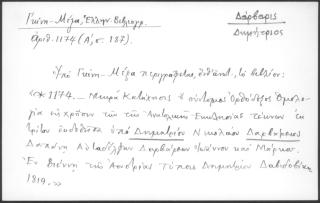 Γκίνη - Μέξα, Ἑλλην. Βιβλιογρ.
ἀριθ. 1174 (Α', σ. 187).
Δάρβαρις
Δημήτριος
Ὑπὸ Γκίνη - Μέξα περιγράφεται, τὸ βιβλίον:
«*1174. — Μικρὰ Κατήχησις ἢ σύντομος Ὀρθόδοξος Ὁμολο-
γία εἰς χρῆσιν τῶν τῆς Ἀνατολικῆς Ἐκκλησίας τέκνων ἐκ
τρίτου ἐκδοθεῖσα ὑπὸ Δημητρίου Νικολάου Δαρβάρεως
Δαπάνῃ Αὐταδέλφων Δαρβάρεων Ἰωάννου καὶ Μάρκου.
Ἐν Βιέννῃ τῆς Αουστρίας Τύποις Δημητρίου Δαβιδοβίκη
1819.»